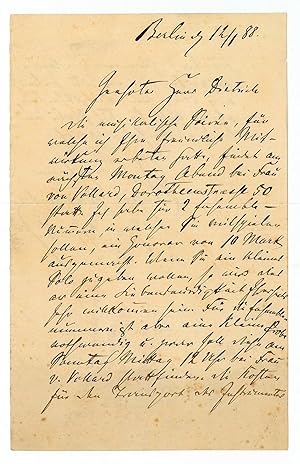 Berlin d. 12/1 88.
Geehrter Herr Dietrich
Die musikalische Soirée, für
welche ich Ihre freundliche Mit-
wirkung erbeten hatte, findet am
nächsten Montag Abend bei Frau
von Vollard, Dorotheenstrasse 50
statt. Ich habe für 2 Ensemble-
nummern, in welchen Sie mitspielen
sollen, ein Honorar von 10 Mark
ausgemacht. Wenn Sie ein kleines
Solo zugeben wollen, so wird das
als eine Liebenswürdigkeit Ihrerseits
sehr willkommen sein. Für die Ensemble-
nummern ist aber eine kleine Probe
nothwendig u. zwar soll diese am
Sonntag Mittag 12 Uhr bei Frau
v. Vollard stattfinden. Die Kosten
für den Transport des Instrumentes